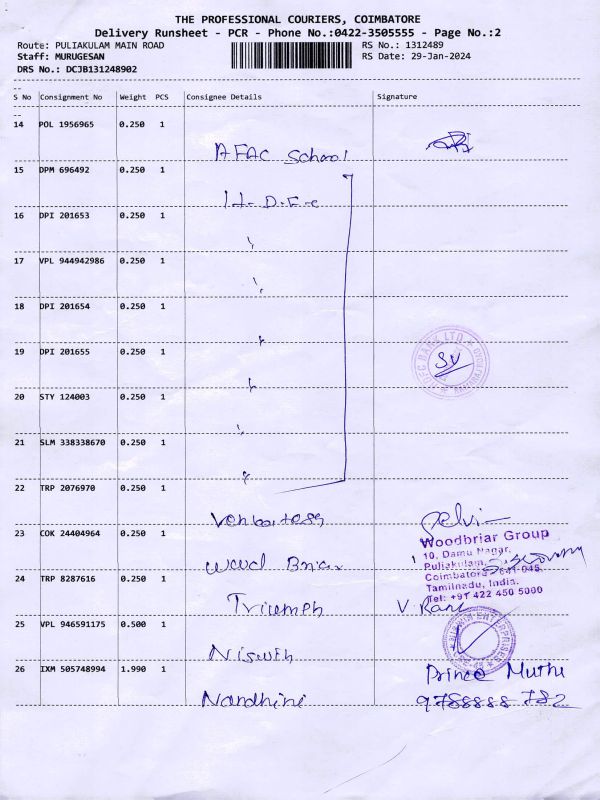 THE PROFESSIONAL COURIERS, COIMBATORE
Delivery Runsheet - PCR - Phone No.:0422-3505555 - Page No.:2
Route: PULIAKULAM MAIN ROAD RS No.: 1312489
Staff: MURUGESAN RS Date: 29-Jan-2024
DRS No.: DCJB131248902
S No Consignment No Weight PCS Consignee Details Signature
14 POL 1956965 0.250 1
AFAC School
15 DPM 696492 0.250 1
H-D.F-C
16 DPI 201653 0.250 1
17 VPL 944942986 0.250 1
18 DPI 201654 0.250 1
19 DPI 201655 0.250 1
HDFC BANK LTD
SV
20 STY 124003 0.250 1
21 SLM 338338670 0.250 1
22 TRP 2076970 0.250 1
Venkatesg Selvi
23 COK 24404964 0.250 1
Woodbriar Group
10, Damu Nagar,
Puliakulam,
Coimbatore - 641-045.
Tamilnadu, India.
Tel: +91 422 450 5000
Wood Briar
24 TRP 8287616 0.250 1
Triumph V Rani
25 VPL 946591175 0.500 1
ENTERPRISES
Niswin
26 IXM 505748994 1.990 1
Prince Muthu
Nandhini 9788888 782